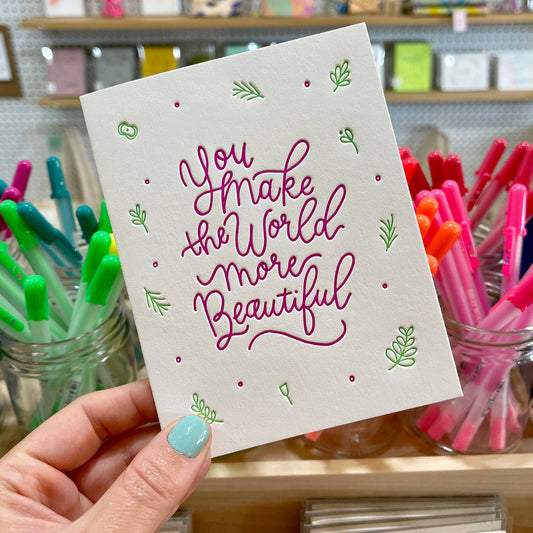 You
Make
the World
More
Beautiful